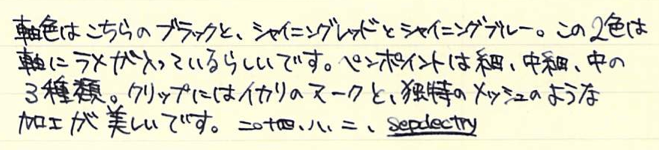 軸色はこちらのブラックと、シャイニングレッドとシャイニングブルー。この2色は
軸にラメが入っているらしいです。ペンポイントは細、中細、中の
3種類。クリップにはイカリのマークと、独特のメッシュのような
加工が美しいです。二〇十四、八、二、sepdectry